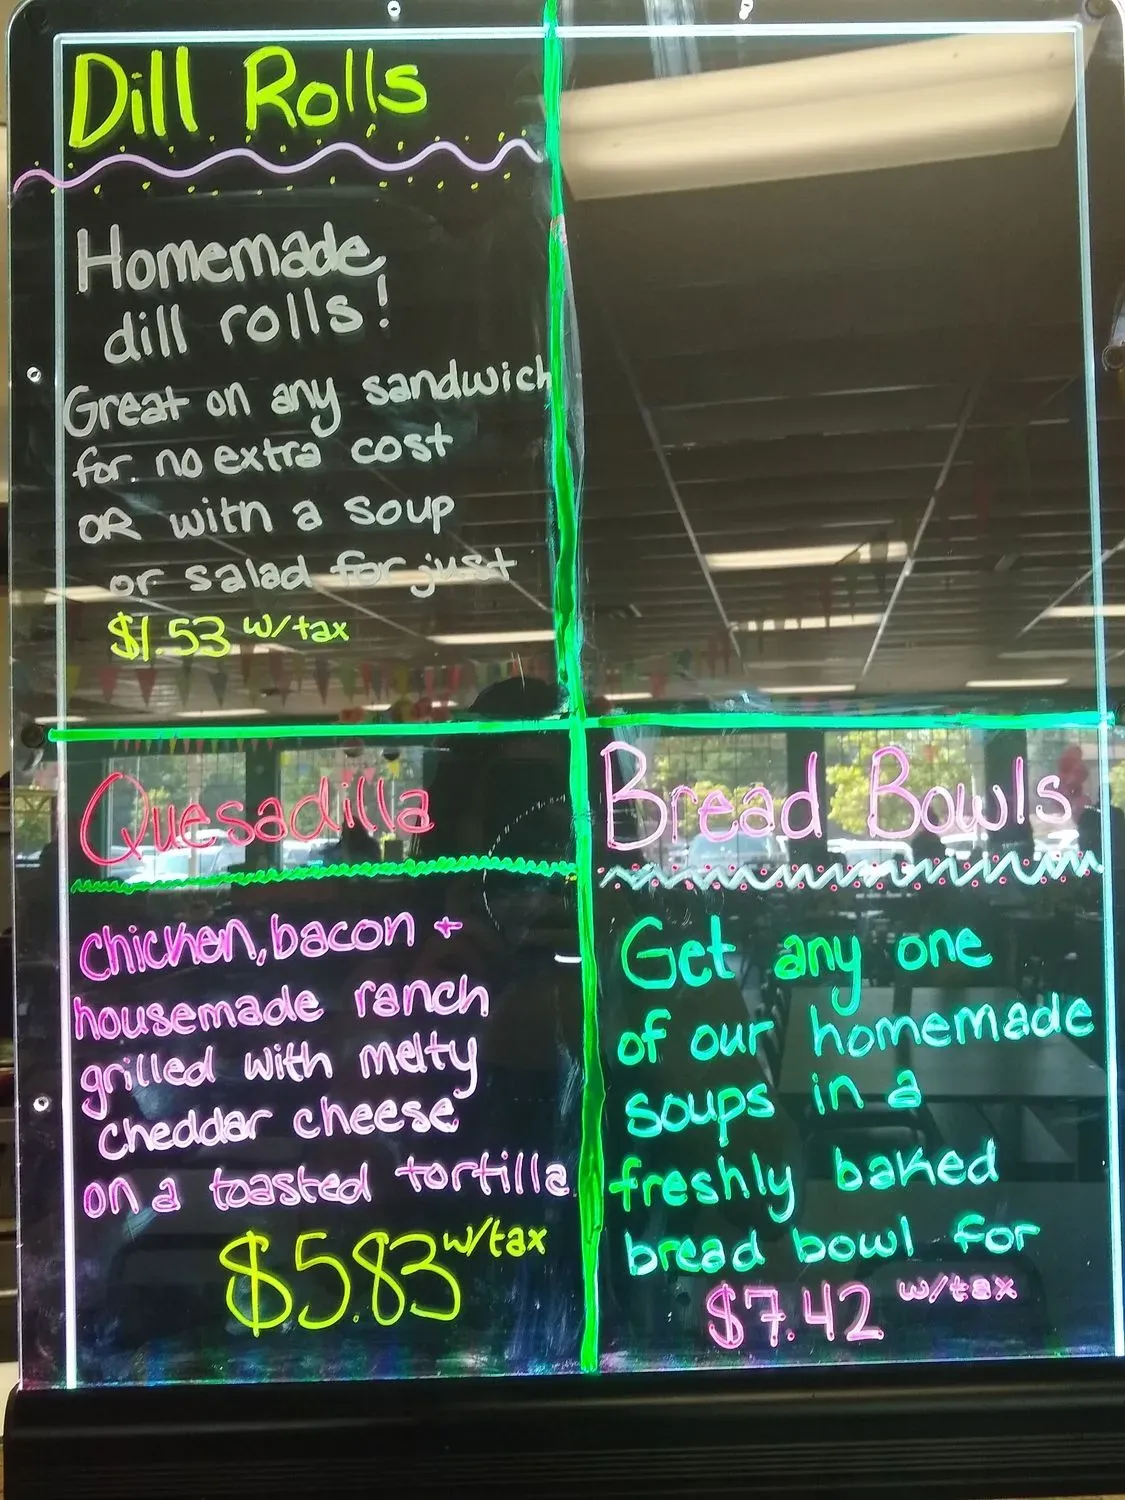 Dill Rolls
Homemade
dill rolls!
Great on any sandwich
for no extra cost
OR with a soup
or salad for just
$1.53 w/tax
Quesadilla
Chicken, bacon +
housemade ranch
grilled with melty
cheddar cheese
on a toasted tortilla
$5.83 w/tax
Bread Bowls
Get any one
of our homemade
soups in a
freshly baked
bread bowl for
$7.42 w/tax